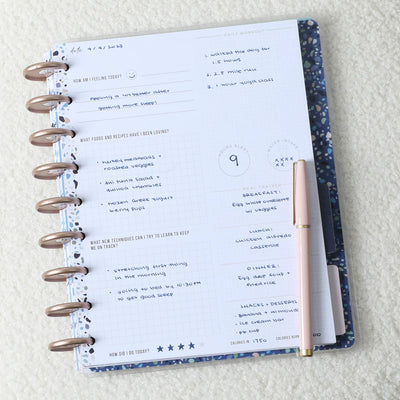 date 9/9/2023
DAILY WORKOUT
HOW AM I FEELING TODAY?
feeling a lot better after
getting more sleep!
1. walked the dog for
1.5 hours
2. 2.5 mile run
3. 1 hour yoga class
WHAT FOODS AND RECIPES HAVE I BEEN LOVING?
• turkey meatballs +
roasted veggies
• quinoa
• frozen Greek yogurt
berry pops
9
BREAKFAST:
Egg white omelette
w/ veggies
LUNCH:
chicken alfredo
casserole
DINNER:
Egg drop soup +
fried rice
SNACKS + DESSERTS
• Banana + almonds
• ice cream bar
WHAT NEW TECHNIQUES CAN I TRY TO LEARN TO KEEP
ME ON TRACK?
• stretching first thing
in the morning
• going to bed by 10:30pm
to get good sleep
HOW DID I DO TODAY?
CALORIES IN: 1750
CALORIES BURN